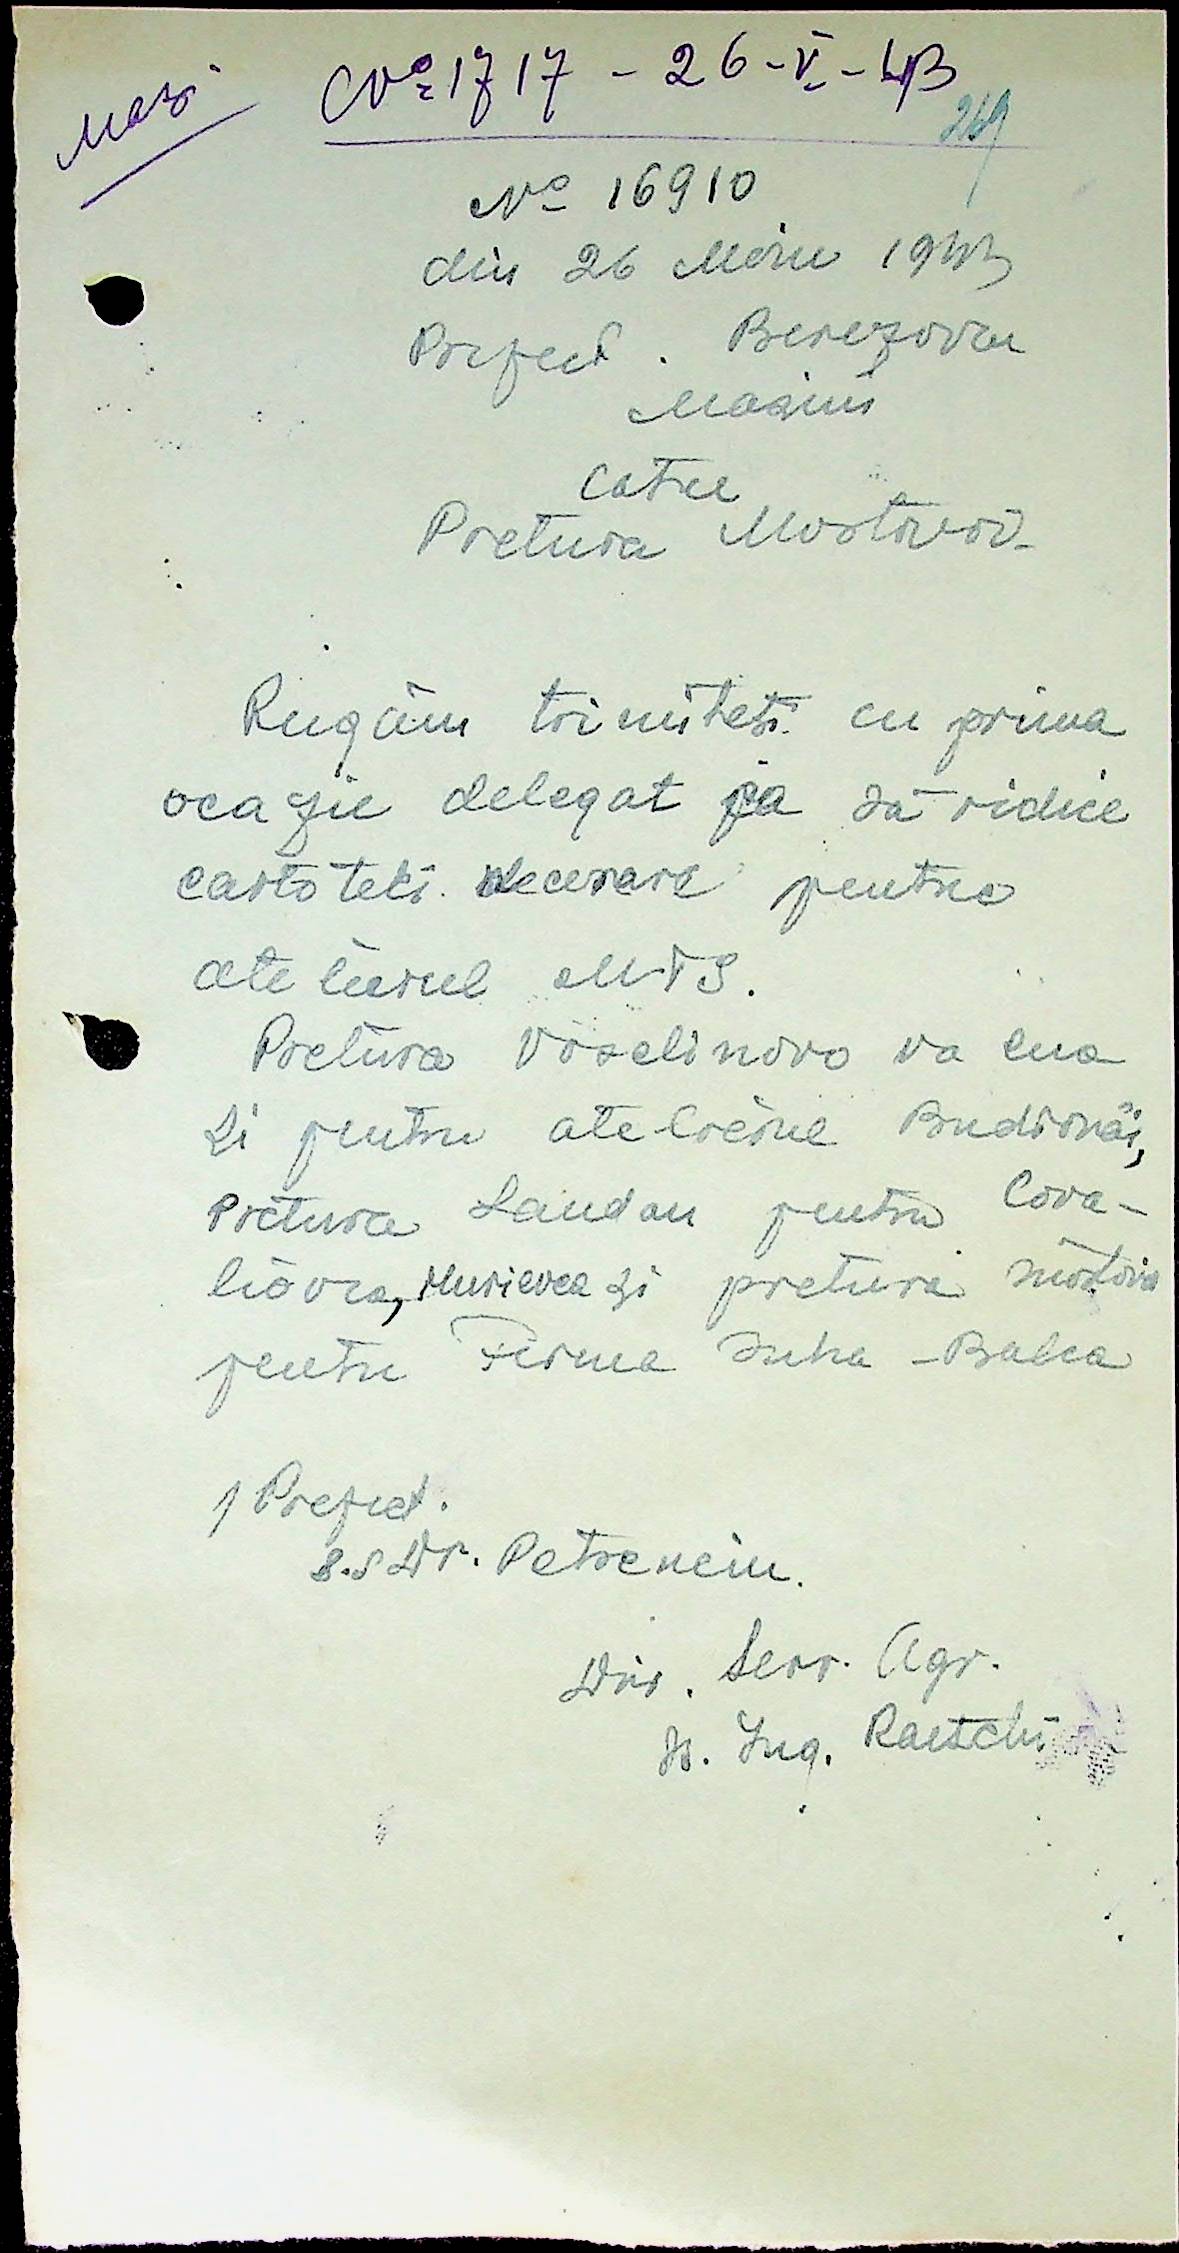 Nº 1717 - 26-V-43
269
Nº 16910
din 26 Maiu 1943
Prefect. Berezovca
Masini
Catre
Pretura Mostovoi-
Rugăm trimiteti cu prima
ocazie delegat sa ridice
cartoteci necesare pentru
atelierul MTS.
Pretura Vaselinovo va lua
și pentru atelierul Budionăi,
Pretura Landau pentru Cova-
liovca, Murievca și pretura Mostovoi
pentru Ferma Suha - Balca
/ Prefect.
s.s Dr. Petrenciu.
Dir. Serv. Agr.
ss. Ing. Raetchi